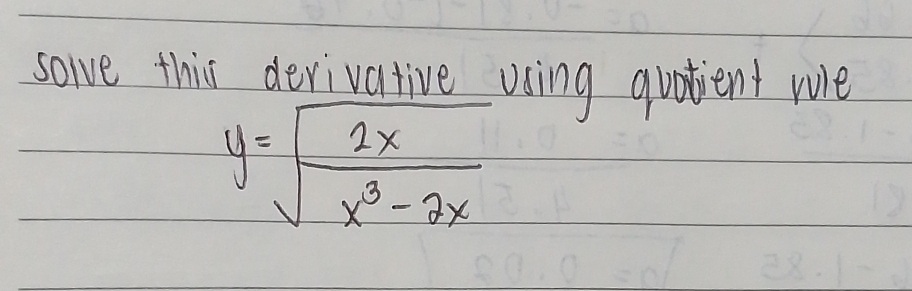 solve this derivative using quotient rule
y = √(2x / (x³ - 2x))